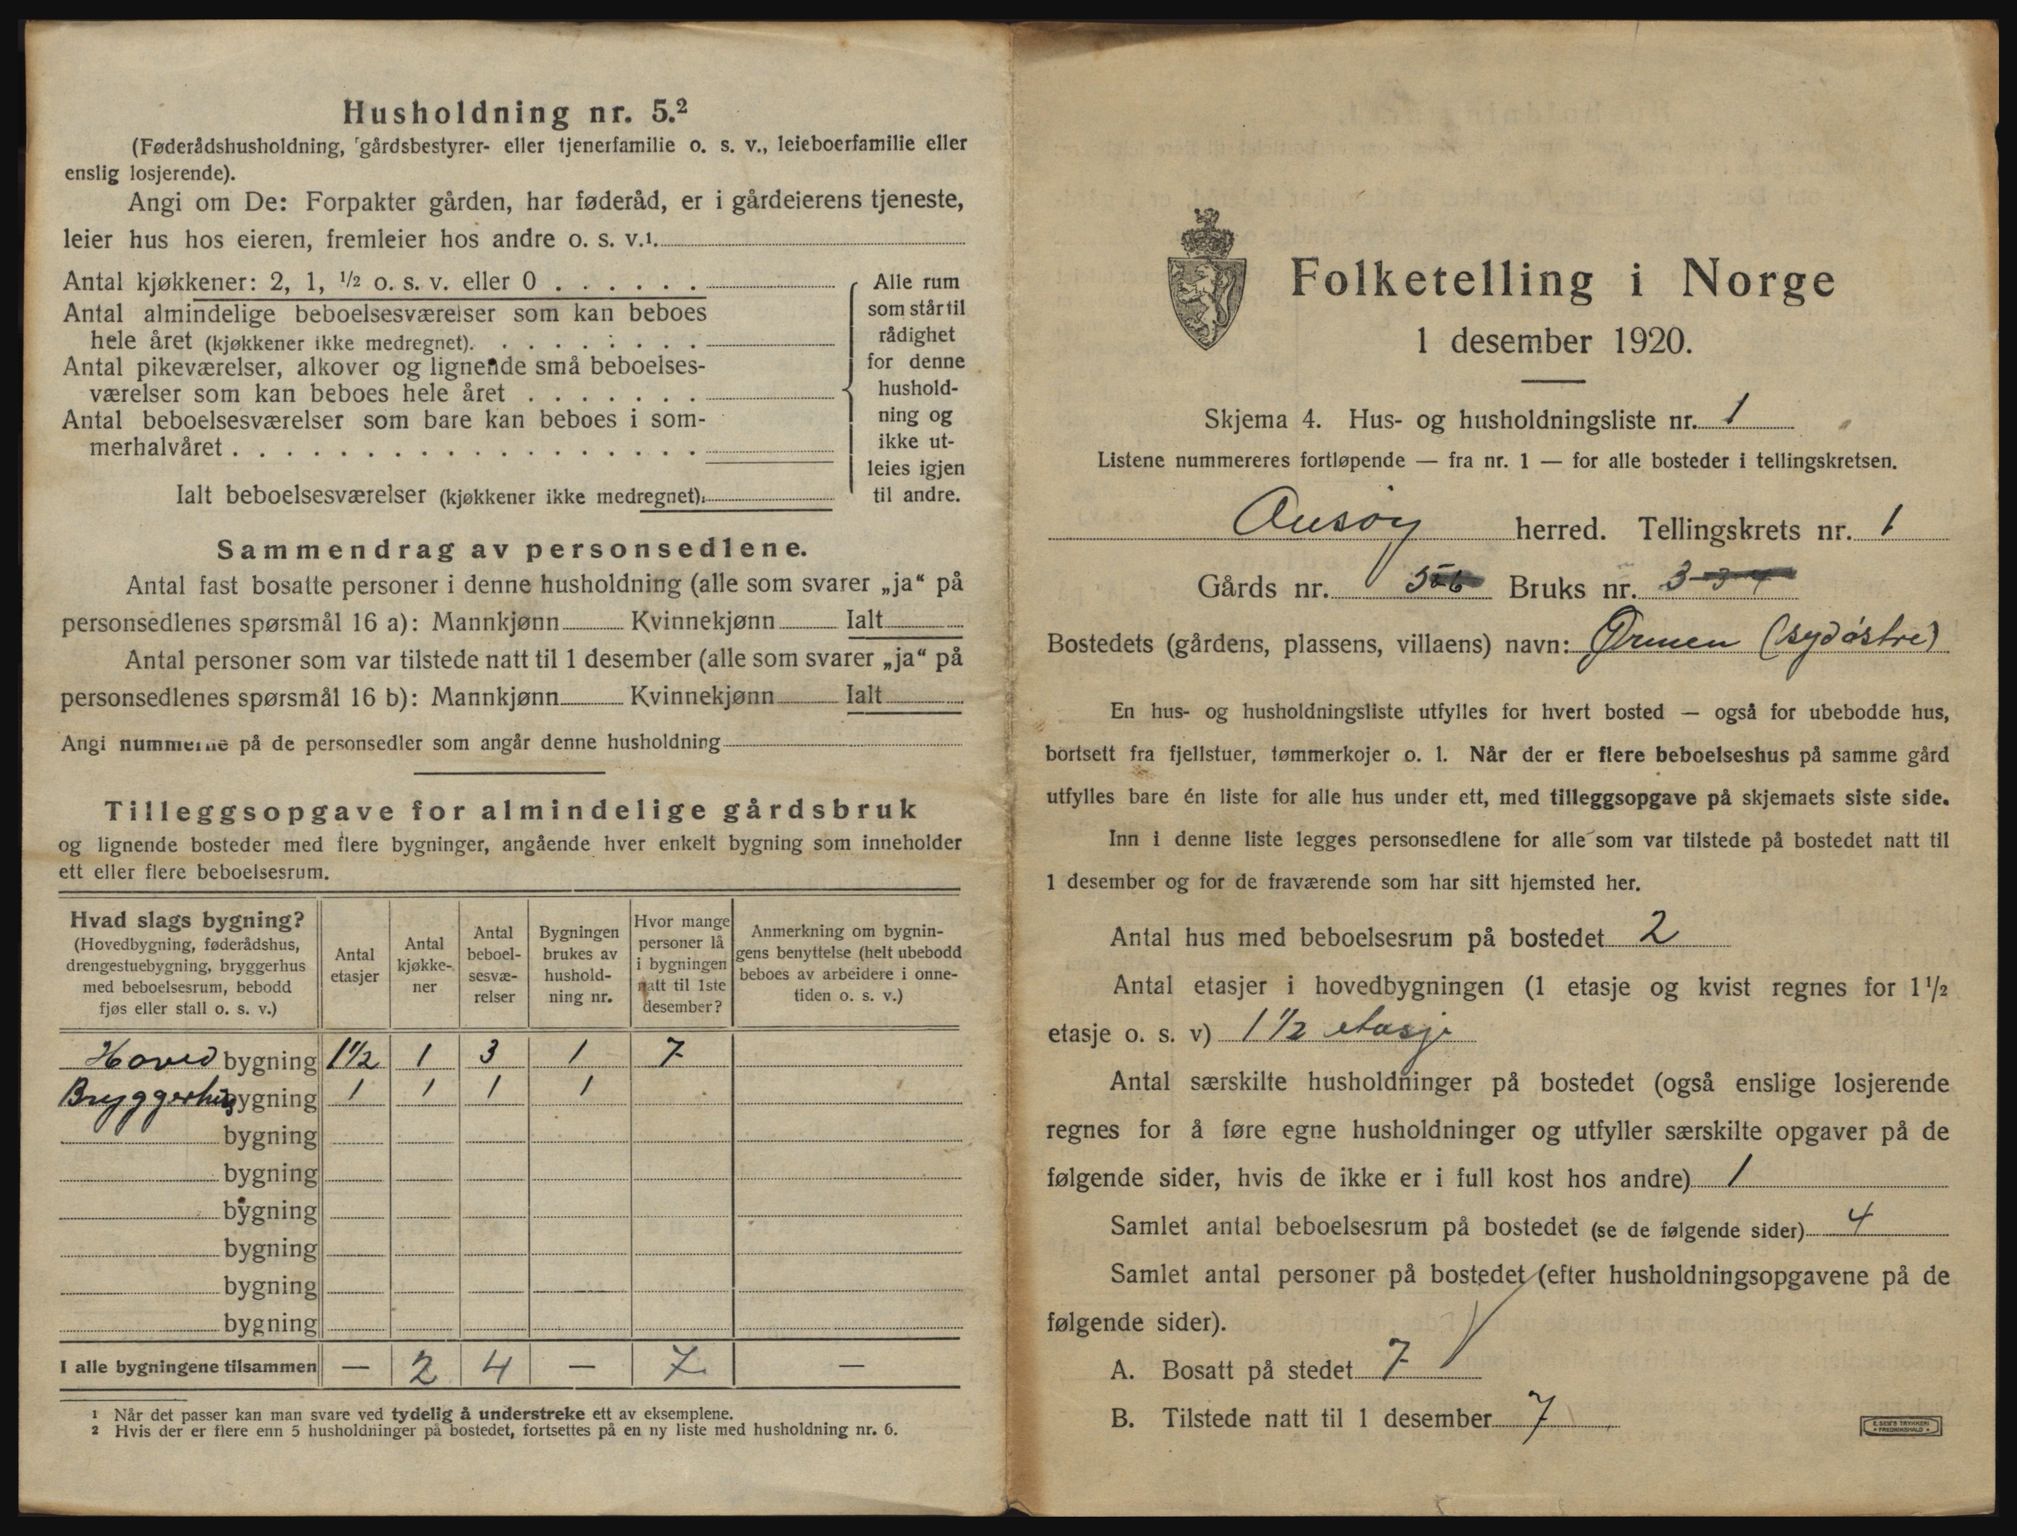 Husholdning nr. 5.²
(Føderådshusholdning, gårdsbestyrer- eller tjenerfamilie o. s. v., leieboerfamilie eller
enslig losjerende).
Angi om De: Forpakter gården, har føderåd, er i gårdeierens tjeneste,
leier hus hos eieren, fremleier hos andre o. s. v.¹.
Antal kjøkkener: 2, 1, ½ o. s. v. eller 0 . . . . . .
Antal almindelige beboelsesværelser som kan beboes
hele året (kjøkkener ikke medregnet). . . . . . . . .
Antal pikeværelser, alkover og lignende små beboelses-
værelser som kan beboes hele året . . . . . . .
Antal beboelsesværelser som bare kan beboes i som-
merhalvåret . . . . . . . . . . . . . . . . . .
Ialt beboelsesværelser (kjøkkener ikke medregnet).
Alle rum
som står til
rådighet
for denne
hushold-
ning og
ikke ut-
leies igjen
til andre.
Sammendrag av personsedlene.
Antal fast bosatte personer i denne husholdning (alle som svarer „ja“ på
personsedlenes spørsmål 16 a): Mannkjønn Kvinnekjønn Ialt
Antal personer som var tilstede natt til 1 desember (alle som svarer „ja“ på
personsedlenes spørsmål 16 b): Mannkjønn Kvinnekjønn Ialt
Angi nummerne på de personsedler som angår denne husholdning
Tilleggsopgave for almindelige gårdsbruk
og lignende bosteder med flere bygninger, angående hver enkelt bygning som inneholder
ett eller flere beboelsesrum.
Hvad slags bygning?
(Hovedbygning, føderådshus,
drengestuebygning, bryggerhus
med beboelsesrum, bebodd
fjøs eller stall o. s. v.)
Antal
etasjer
Antal
kjøkke-
ner
Antal
beboel-
sesvæ-
relser
Bygningen
brukes av
hushold-
ning nr.
Hvor mange
personer lå
i bygningen
natt til 1ste
desember?
Anmerkning om bygnin-
gens benyttelse (helt ubebodd
beboes av arbeidere i onne-
tiden o. s. v.)
Hoved bygning 1½ 1 3 1 7
Bryggerhus bygning 1 1 1 1
bygning
bygning
bygning
bygning
bygning
bygning
I alle bygningene tilsammen — 2 4 — 7 —
¹ Når det passer kan man svare ved tydelig å understreke ett av eksemplene.
² Hvis der er flere enn 5 husholdninger på bostedet, fortsettes på en ny liste med husholdning nr. 6.
Folketelling i Norge
1 desember 1920.
Skjema 4. Hus- og husholdningsliste nr. 1
Listene nummereres fortløpende — fra nr. 1 — for alle bosteder i tellingskretsen.
Onsøy herred. Tellingskrets nr. 1
Gårds nr. 5 Bruks nr. 3
Bostedets (gårdens, plassens, villaens) navn: Ørmen (sydøstre)
En hus- og husholdningsliste utfylles for hvert bosted — også for ubebodde hus,
bortsett fra fjellstuer, tømmerkojer o. l. Når der er flere beboelseshus på samme gård
utfylles bare én liste for alle hus under ett, med tilleggsopgave på skjemaets siste side.
Inn i denne liste legges personsedlene for alle som var tilstede på bostedet natt til
1 desember og for de fraværende som har sitt hjemsted her.
Antal hus med beboelsesrum på bostedet 2
Antal etasjer i hovedbygningen (1 etasje og kvist regnes for 1½
etasje o. s. v) 1½ etasje
Antal særskilte husholdninger på bostedet (også enslige losjerende
regnes for å føre egne husholdninger og utfyller særskilte opgaver på de
følgende sider, hvis de ikke er i full kost hos andre) 1
Samlet antal beboelsesrum på bostedet (se de følgende sider) 4
Samlet antal personer på bostedet (efter husholdningsopgavene på de
følgende sider).
A. Bosatt på stedet 7
B. Tilstede natt til 1 desember 7
E. SEM'S TRYKKERI
FREDRIKSHALD